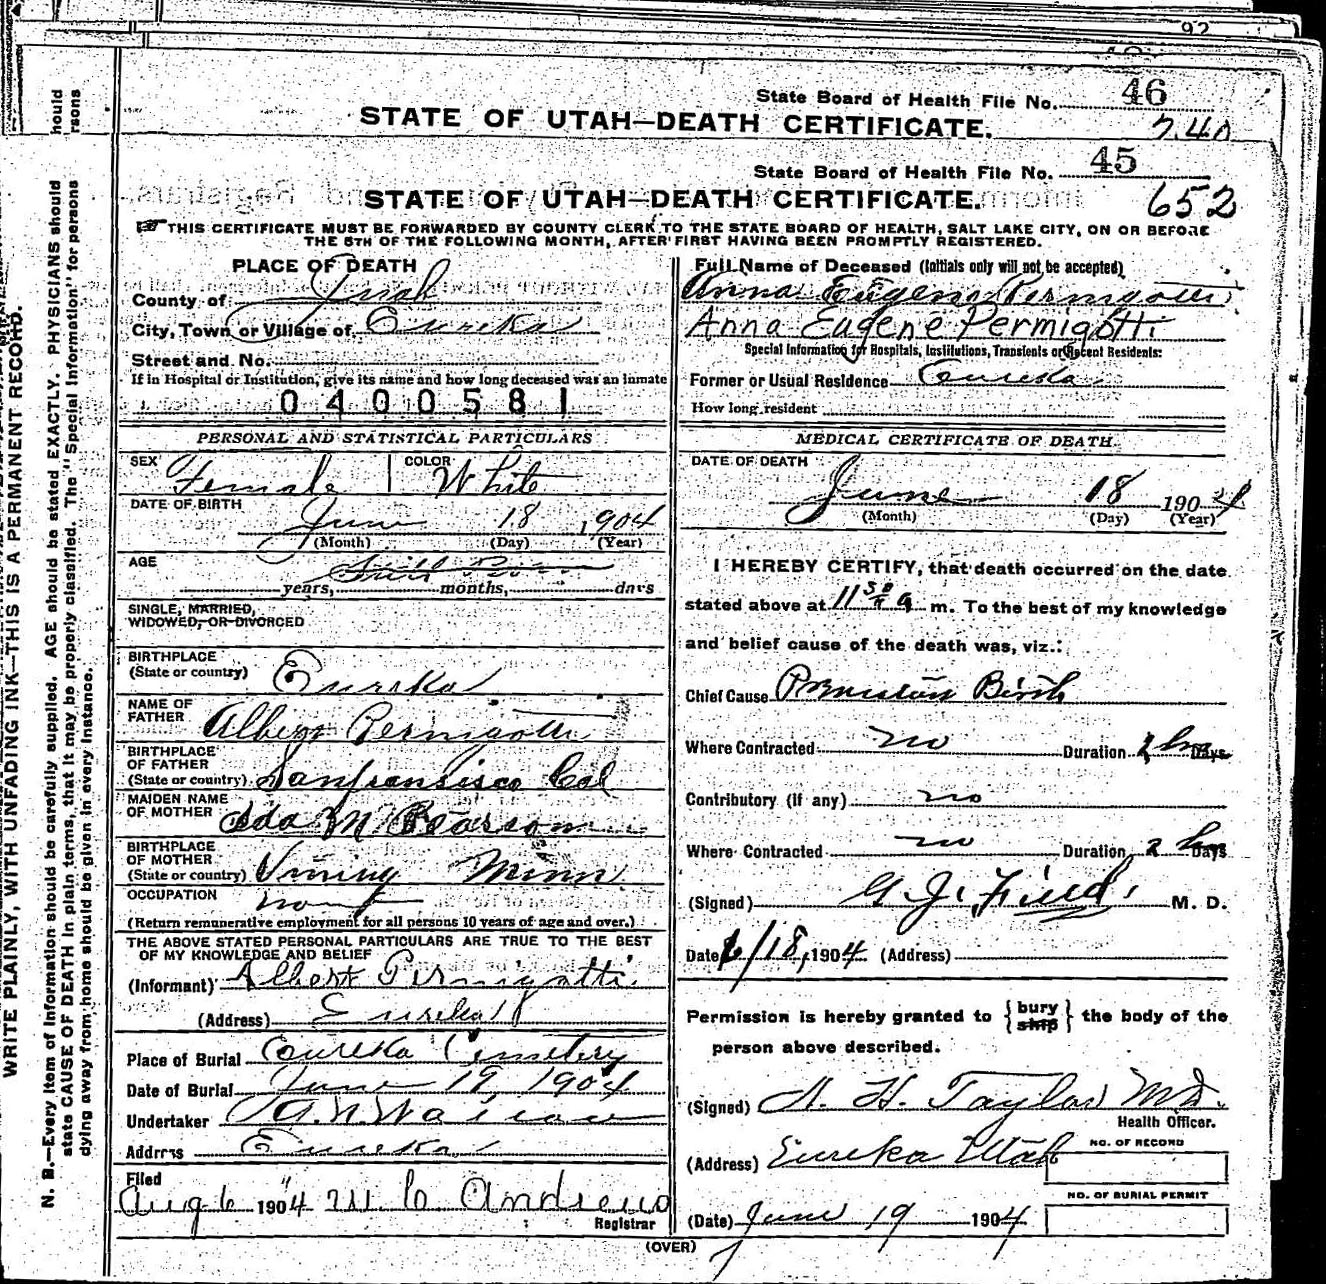 92
State Board of Health File No. 46
STATE OF UTAH—DEATH CERTIFICATE.
740
State Board of Health File No. 45
STATE OF UTAH—DEATH CERTIFICATE.
652
THIS CERTIFICATE MUST BE FORWARDED BY COUNTY CLERK TO THE STATE BOARD OF HEALTH, SALT LAKE CITY, ON OR BEFORE
THE 5TH OF THE FOLLOWING MONTH, AFTER FIRST HAVING BEEN PROMPTLY REGISTERED.
PLACE OF DEATH
County of Juab
City, Town or Village of Eureka
Street and No.
If in Hospital or Institution, give its name and how long deceased was an inmate
0400581
PERSONAL AND STATISTICAL PARTICULARS
SEX Female COLOR White
DATE OF BIRTH
June 18 1904
(Month) (Day) (Year)
AGE Still Born
years, months, days
SINGLE, MARRIED,
WIDOWED, OR DIVORCED
BIRTHPLACE
(State or country) Eureka
NAME OF
FATHER Albert Permigotti
BIRTHPLACE
OF FATHER
(State or country) Sanfransisco Cal
MAIDEN NAME
OF MOTHER Ida M Pearson
BIRTHPLACE
OF MOTHER
(State or country) Vining Minn
OCCUPATION
(Return remunerative employment for all persons 10 years of age and over.)
THE ABOVE STATED PERSONAL PARTICULARS ARE TRUE TO THE BEST
OF MY KNOWLEDGE AND BELIEF
(Informant) Albert Permigotti
(Address) Eureka
Place of Burial Eureka Cemetery
Date of Burial June 19 1904
Undertaker
Address Eureka
Filed
Aug 6 1904 M C Andrews
Registrar
Full Name of Deceased (Initials only will not be accepted)
Anna Eugene Permigotti
Anna Eugene Permigotti
Special Information for Hospitals, Institutions, Transients or Recent Residents:
Former or Usual Residence Eureka
How long resident
MEDICAL CERTIFICATE OF DEATH
DATE OF DEATH
June 18 1904
(Month) (Day) (Year)
I HEREBY CERTIFY, that death occurred on the date
stated above at 11 50 a m. To the best of my knowledge
and belief cause of the death was, viz.:
Chief Cause Premature Birth
Where Contracted no Duration 2 hrs Days
Contributory (if any) no
Where Contracted no Duration 2 hrs Days
(Signed) G. J. Field M. D.
Date 6/18, 1904 (Address)
Permission is hereby granted to {bury ship} the body of the
person above described.
(Signed) H. Taylor M.D.
Health Officer.
(Address) Eureka Utah
NO. OF RECORD
NO. OF BURIAL PERMIT
(Date) June 19 1904
(OVER)
WRITE PLAINLY, WITH UNFADING INK—THIS IS A PERMANENT RECORD.
N. B.—Every item of information should be carefully supplied. AGE should be stated EXACTLY. PHYSICIANS should
state CAUSE OF DEATH in plain terms, that it may be properly classified. The "Special Information" for persons
dying away from home should be given in every instance.
hould
rsons